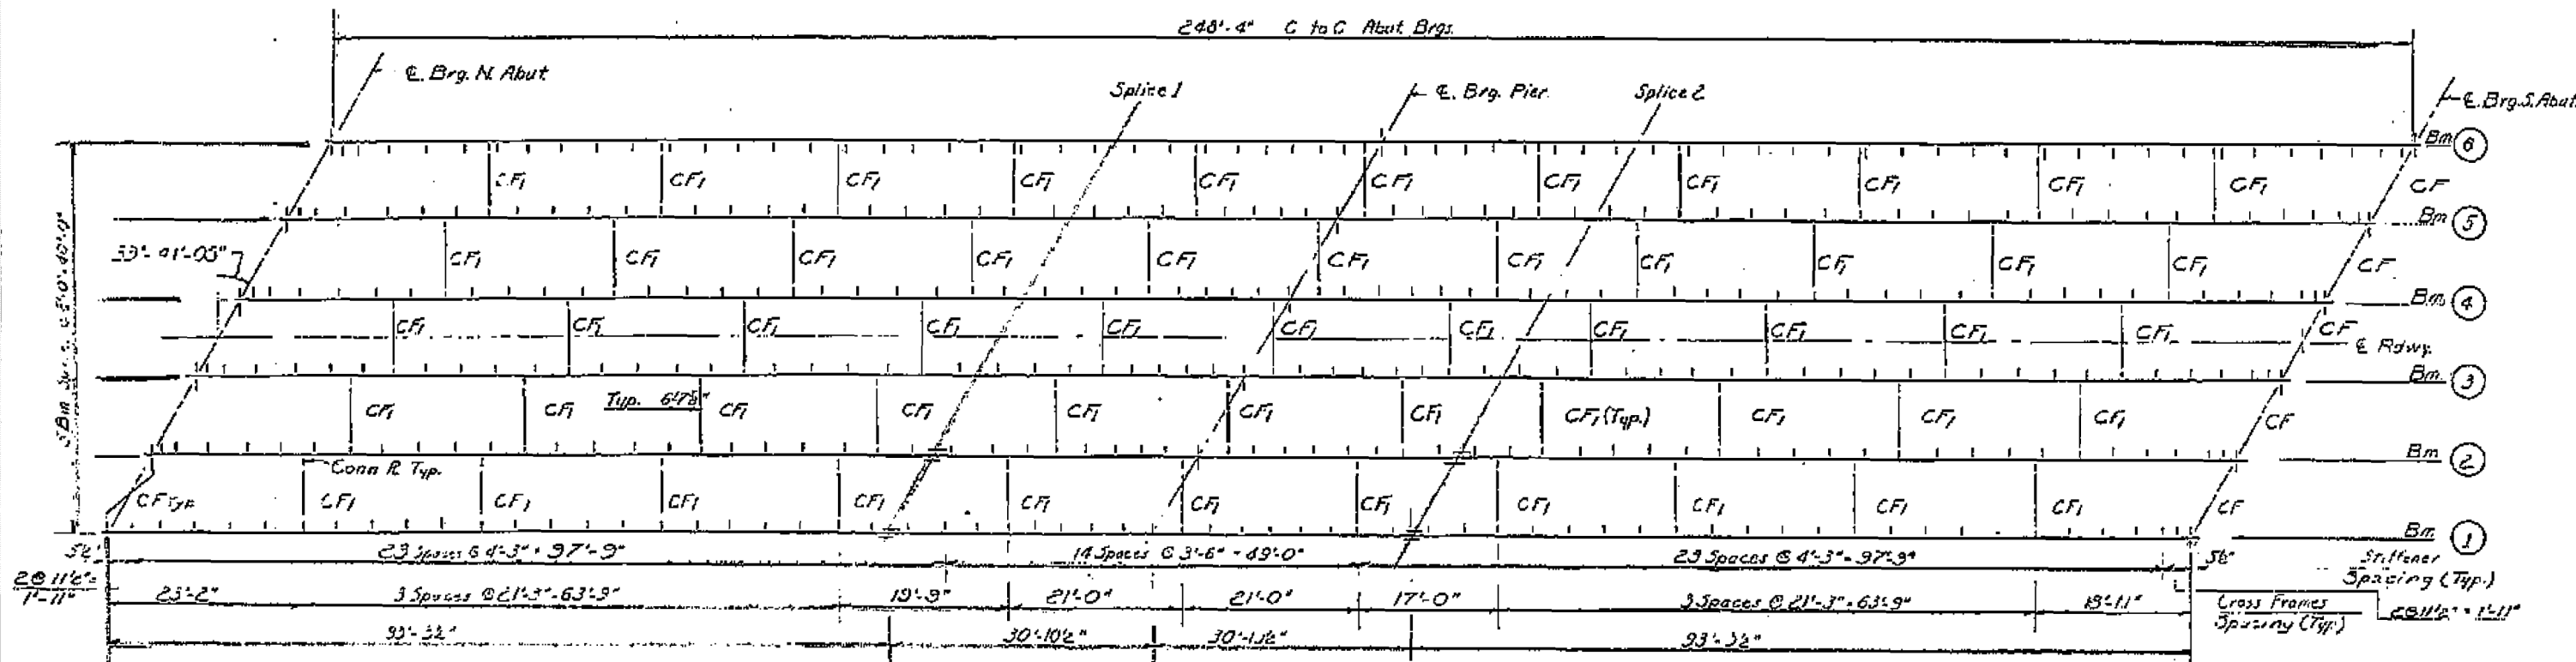 248'-4" C to C Abut Brgs.
℄. Brg. N. Abut
Splice 1
℄. Brg. Pier.
Splice 2
℄. Brg. S. Abut.
Bm 6
CF1 CF1 CF1 CF1 CF1 CF1 CF1 CF1 CF1 CF1 CF1 CF
Bm 5
CF1 CF1 CF1 CF1 CF1 CF1 CF1 CF1 CF1 CF1 CF1 CF
Bm. 4
CF1 CF1 CF1 CF1 CF1 CF1 CF1 CF1 CF1 CF1 CF1 CF
℄ Rdwy.
Bm. 3
CF1 CF1 Typ. CF1 CF1 CF1 CF1 CF1 CF1 (Typ.) CF1 CF1 CF1 CF
Bm 2
Conn ℞ Typ.
CF Typ CF1 CF1 CF1 CF1 CF1 CF1 CF1 CF1 CF1 CF1 CF1 CF
Bm. 1
23 Spaces @ 4'-3" = 97'-9" 14 Spaces @ 3'-6" = 49'-0" 23 Spaces @ 4'-3" = 97'-9"
Stiffener
Spacing (Typ.)
2 @ 11½" =
1'-11"
23'-2" 3 Spaces @ 21'-3" = 63'-9" 19'-9" 21'-0" 21'-0" 17'-0" 3 Spaces @ 21'-3" = 63'-9" 18'-11"
Cross Frames
Spacing (Typ.)
2 @ 11½" = 1'-11"
93'-3½" 30'-10½" 93'-3½"